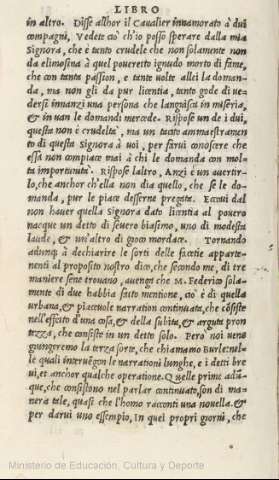 LIBRO
in altro. Disse allhor il Caualier innamorato à dui
compagni, Vedete ciò ch'io posso sperare dalla mia
Signora, che è tanto crudele che non solamente non
da elimosina à quel poueretto ignudo morto di fame,
che con tanta passion, e tante uolte allei la doman-
da, ma non gli da pur licentia, tanto gode di ue-
dersi innanzi una persona che languisca in miseria,
& in uan le domandi mercede. Rispose un de i dui,
questa non è crudeltà, ma un tacito ammaestramen
to di questa Signora à uoi, per farui conoscere che
essa non compiace mai à chi le domanda con mol-
ta importunità. Rispose laltro, Anzi è un auertir-
lo, che anchor ch'ella non dia quello, che se le do-
manda, pur le piace desserne pregata. Eccoui dal
non hauer quella Signora dato licentia al pouero
nacque un detto di seuero biasimo, uno di modesta
laude, & un'altro di gioco mordace. Tornando
adunq; à dechiarire le sorti delle facetie apparte-
nenti al proposito nostro dico, che secondo me, di tre
maniere sene trouano, auenga che M. Federico sola-
mente di due habbia fatto mentione, cioè di quella
urbana, & piaceuole narration continuata, che cōsiste
nell'effetto d'una cosa, & della subita, & arguta pron
tezza, che consiste in un detto solo. Però noi uene
giungeremo la terza sorte, che chiamamo Burle, nel-
le quali interuēgon le narrationi lunghe, e i detti bre
ui, et anchor qualche operatione. Quelle prime adū-
que, che consistono nel parlar continuato, son di ma-
nera tale, quasi che l'homo racconti una nouella. &
per darui uno essempio, In quei propri giorni, che
Ministerio de Educación, Cultura y Deporte